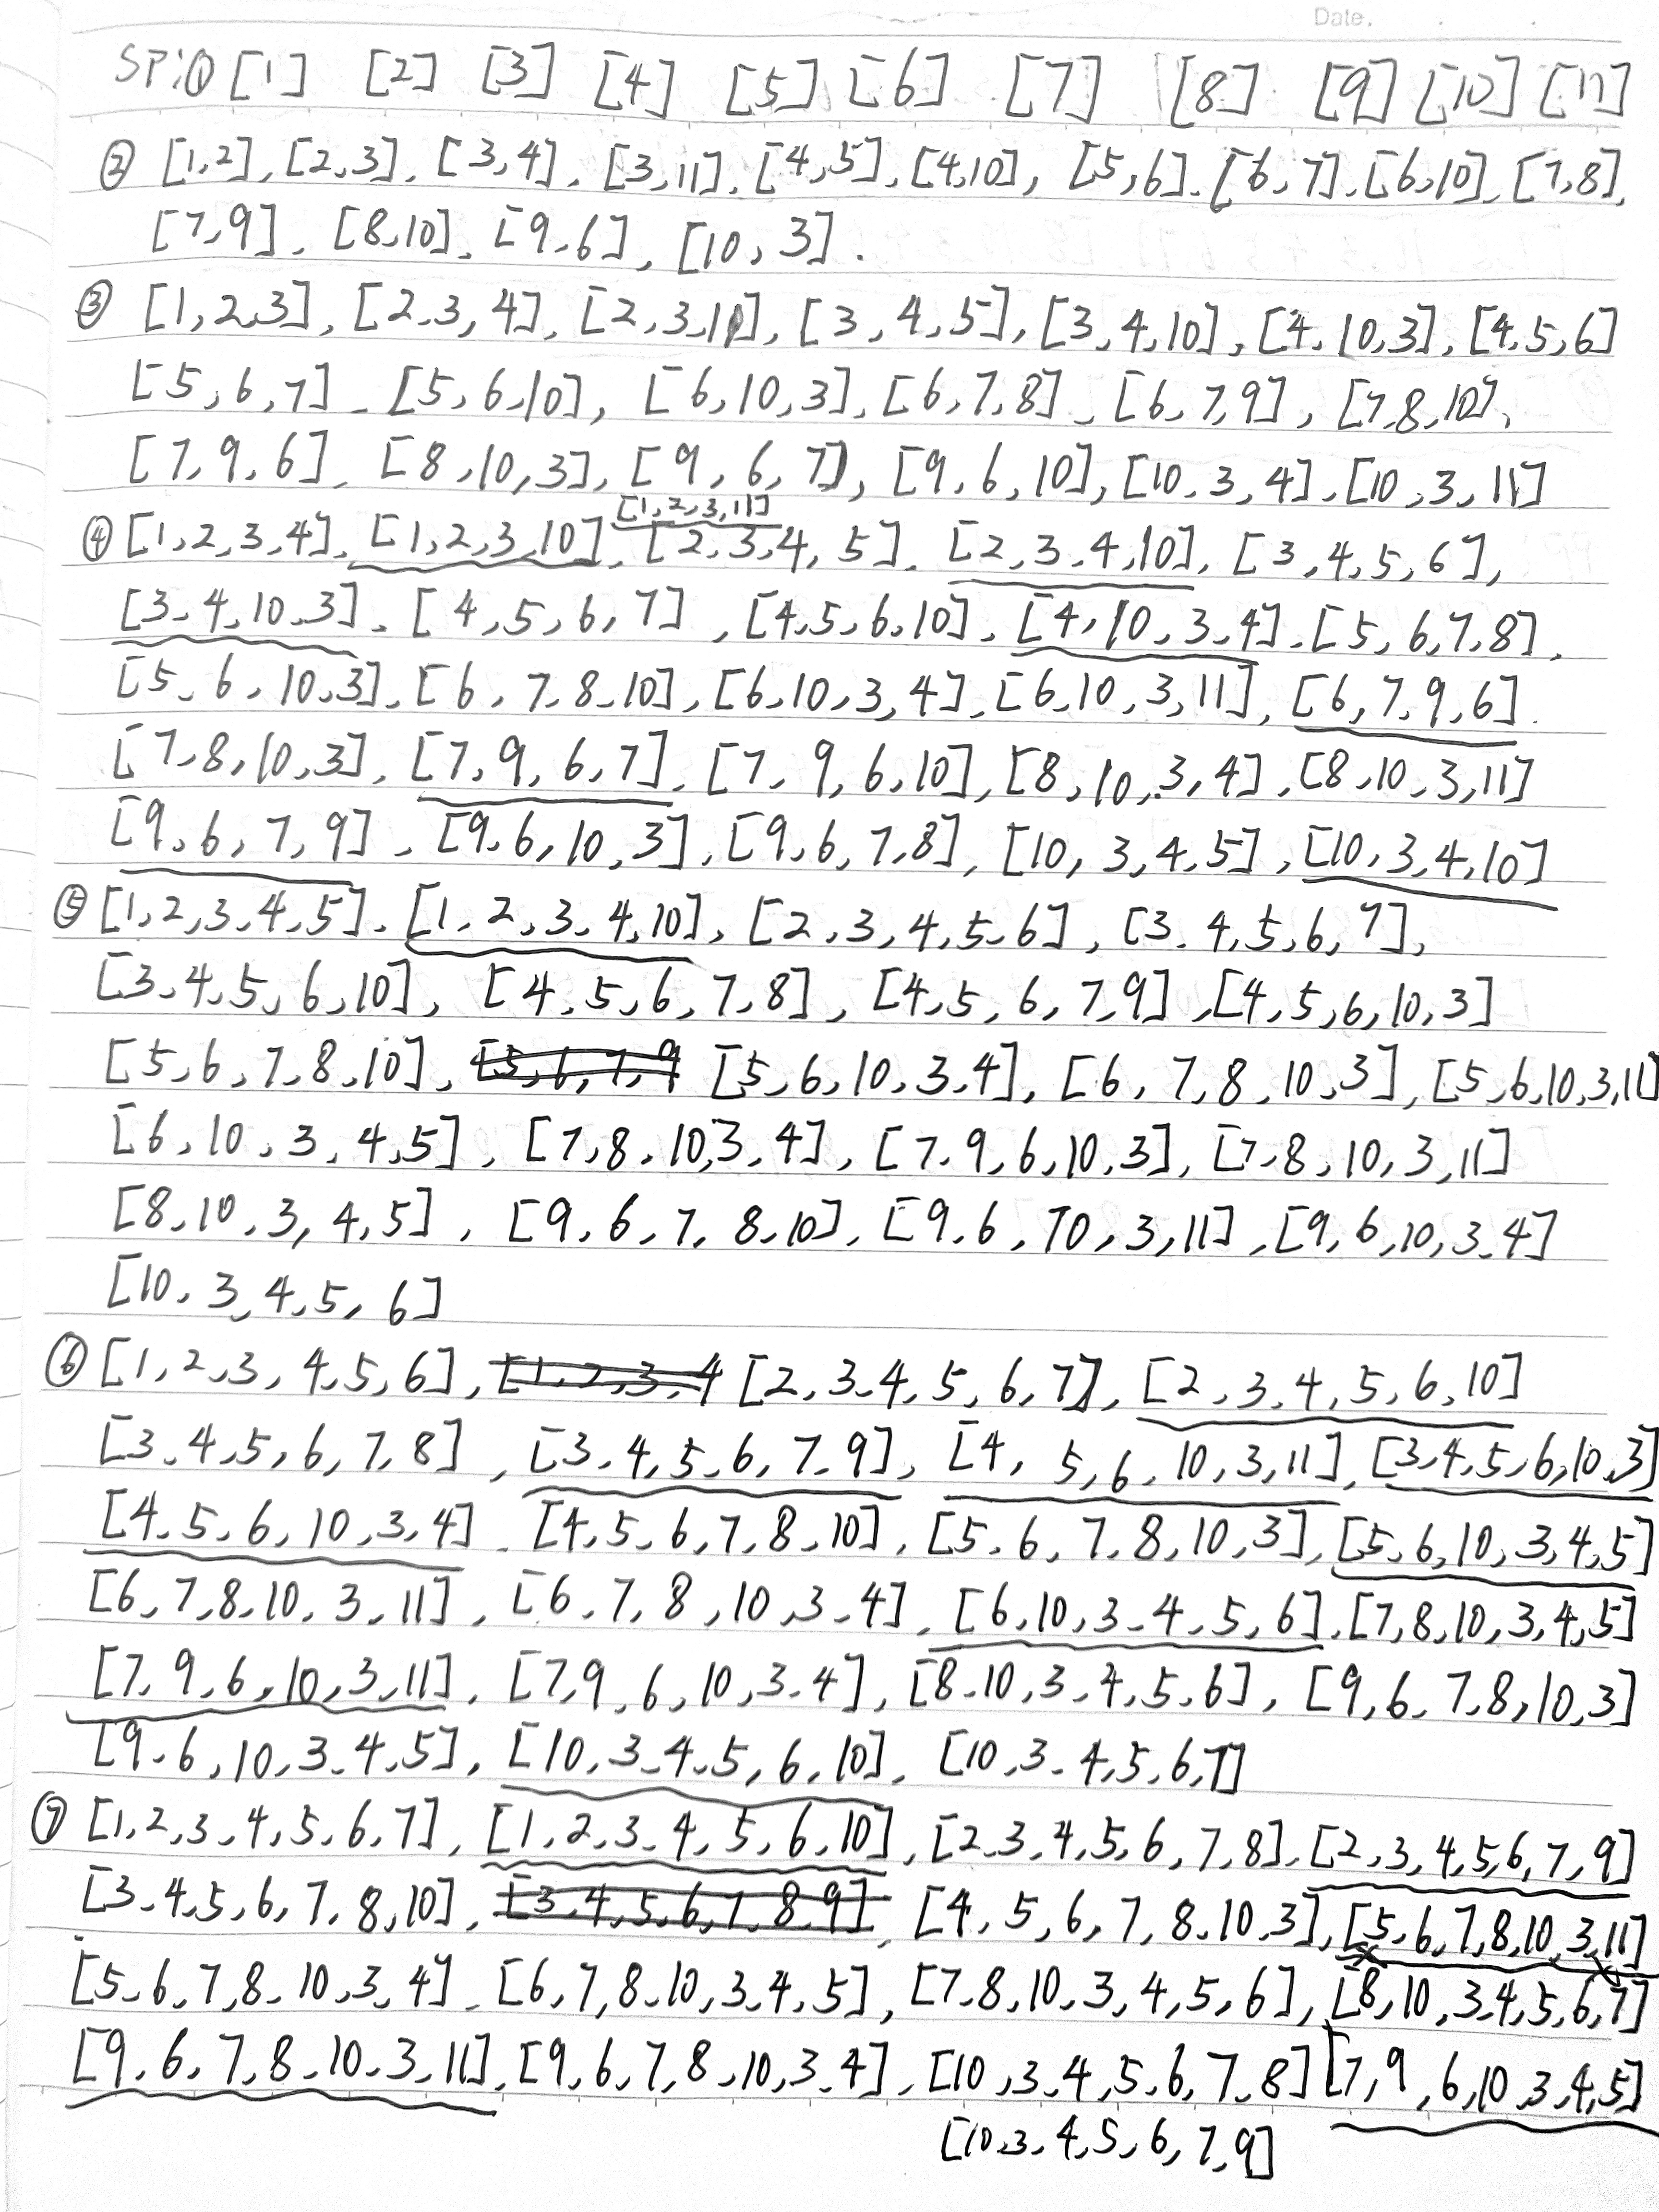 Date.
SP:① [1] [2] [3] [4] [5] [6] [7] [8] [9] [10] [11]
② [1,2], [2,3], [3,4], [3,11], [4,5], [4,10], [5,6], [6,7], [6,10], [7,8],
[7,9], [8,10], [9,6], [10,3].
③ [1,2,3], [2,3,4], [2,3,11], [3,4,5], [3,4,10], [4,10,3], [4,5,6]
[5,6,7], [5,6,10], [6,10,3], [6,7,8], [6,7,9], [7,8,10],
[7,9,6], [8,10,3], [9,6,7], [9,6,10], [10,3,4], [10,3,11]
[1,2,3,11]
④ [1,2,3,4], [1,2,3,10], [2,3,4,5], [2,3,4,10], [3,4,5,6],
[3,4,10,3], [4,5,6,7], [4,5,6,10], [4,10,3,4], [5,6,7,8],
[5,6,10,3], [6,7,8,10], [6,10,3,4], [6,10,3,11], [6,7,9,6].
[7,8,10,3], [7,9,6,7], [7,9,6,10], [8,10,3,4], [8,10,3,11]
[9,6,7,9], [9,6,10,3], [9,6,7,8], [10,3,4,5], [10,3,4,10]
⑤ [1,2,3,4,5], [1,2,3,4,10], [2,3,4,5,6], [3,4,5,6,7],
[3,4,5,6,10], [4,5,6,7,8], [4,5,6,7,9], [4,5,6,10,3]
[5,6,7,8,10], [5,6,7,9 [5,6,10,3,4], [6,7,8,10,3], [5,6,10,3,11]
[6,10,3,4,5], [7,8,10,3,4], [7,9,6,10,3], [7,8,10,3,11]
[8,10,3,4,5], [9,6,7,8,10], [9,6,10,3,11], [9,6,10,3,4]
[10,3,4,5,6]
⑥ [1,2,3,4,5,6], [1,2,3,4 [2,3,4,5,6,7], [2,3,4,5,6,10]
[3,4,5,6,7,8], [3,4,5,6,7,9], [4,5,6,10,3,11], [3,4,5,6,10,3]
[4,5,6,10,3,4], [4,5,6,7,8,10], [5,6,7,8,10,3], [5,6,10,3,4,5]
[6,7,8,10,3,11], [6,7,8,10,3,4], [6,10,3,4,5,6], [7,8,10,3,4,5]
[7,9,6,10,3,11], [7,9,6,10,3,4], [8,10,3,4,5,6], [9,6,7,8,10,3]
[9,6,10,3,4,5], [10,3,4,5,6,10], [10,3,4,5,6,7]
⑦ [1,2,3,4,5,6,7], [1,2,3,4,5,6,10], [2,3,4,5,6,7,8], [2,3,4,5,6,7,9]
[3,4,5,6,7,8,10], [3,4,5,6,7,8,9], [4,5,6,7,8,10,3], [5,6,7,8,10,3,11]
[5,6,7,8,10,3,4], [6,7,8,10,3,4,5], [7,8,10,3,4,5,6], [8,10,3,4,5,6,7]
[9,6,7,8,10,3,11], [9,6,7,8,10,3,4], [10,3,4,5,6,7,8] [7,9,6,10,3,4,5]
[10,3,4,5,6,7,9]